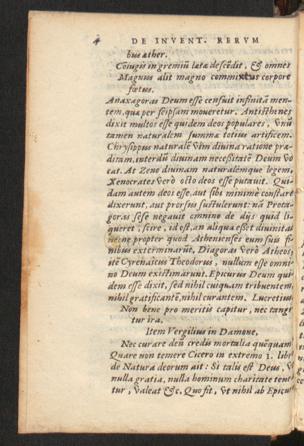 4 DE INVENT. RERVM
bus æther.
Cōiugis in gremiū latæ descēdit, & omnes
Magnus alit magno commixtus corpore
fœtus.
Anaxagoras Deum esse censuit infinitā men-
tem, quæ per seipsam moueretur. Antisthenes
dixit multos esse quidem deos populares, vnū
tamen naturalem summæ totius artificem.
Chrysippus naturalē vim diuina ratione præ-
ditam, interdū diuinam necessitatē Deum vo
cat. At Zeno diuinam naturalémque legem,
Xenocrates verò octo deos esse putauit. Qui-
dam autem deos esse, aut sibi minimè constare
dixerunt, aut prorsus sustulerunt: nā Prota-
goras sese negauit omnino de diis quid li-
queret, scire, id est, an aliqua esset diuinitas
necne propter quod Athenienses eum suis fi
nibus exterminarūt, Diagoras verò Atheos,
itē Cyrenaicus Theodorus, nullum esse omni
no Deum existimarunt. Epicurus Deum qui
dem esse dixit, sed nihil cuiquam tribuentem,
nihil gratificantē, nihil curantem. Lucretius
Non bene pro meritis capitur, nec tangi
tur ira.
Item Vergilius in Damone,
Nec curare deū credis mortalia quēquam
Quare non temere Cicero in extremo 1. libr
de Natura deorum ait: Si talis est Deus, v
nulla gratia, nulla hominum charitate tenea
tur, valeat &c. Quo fit, vt nihil ab Epicur